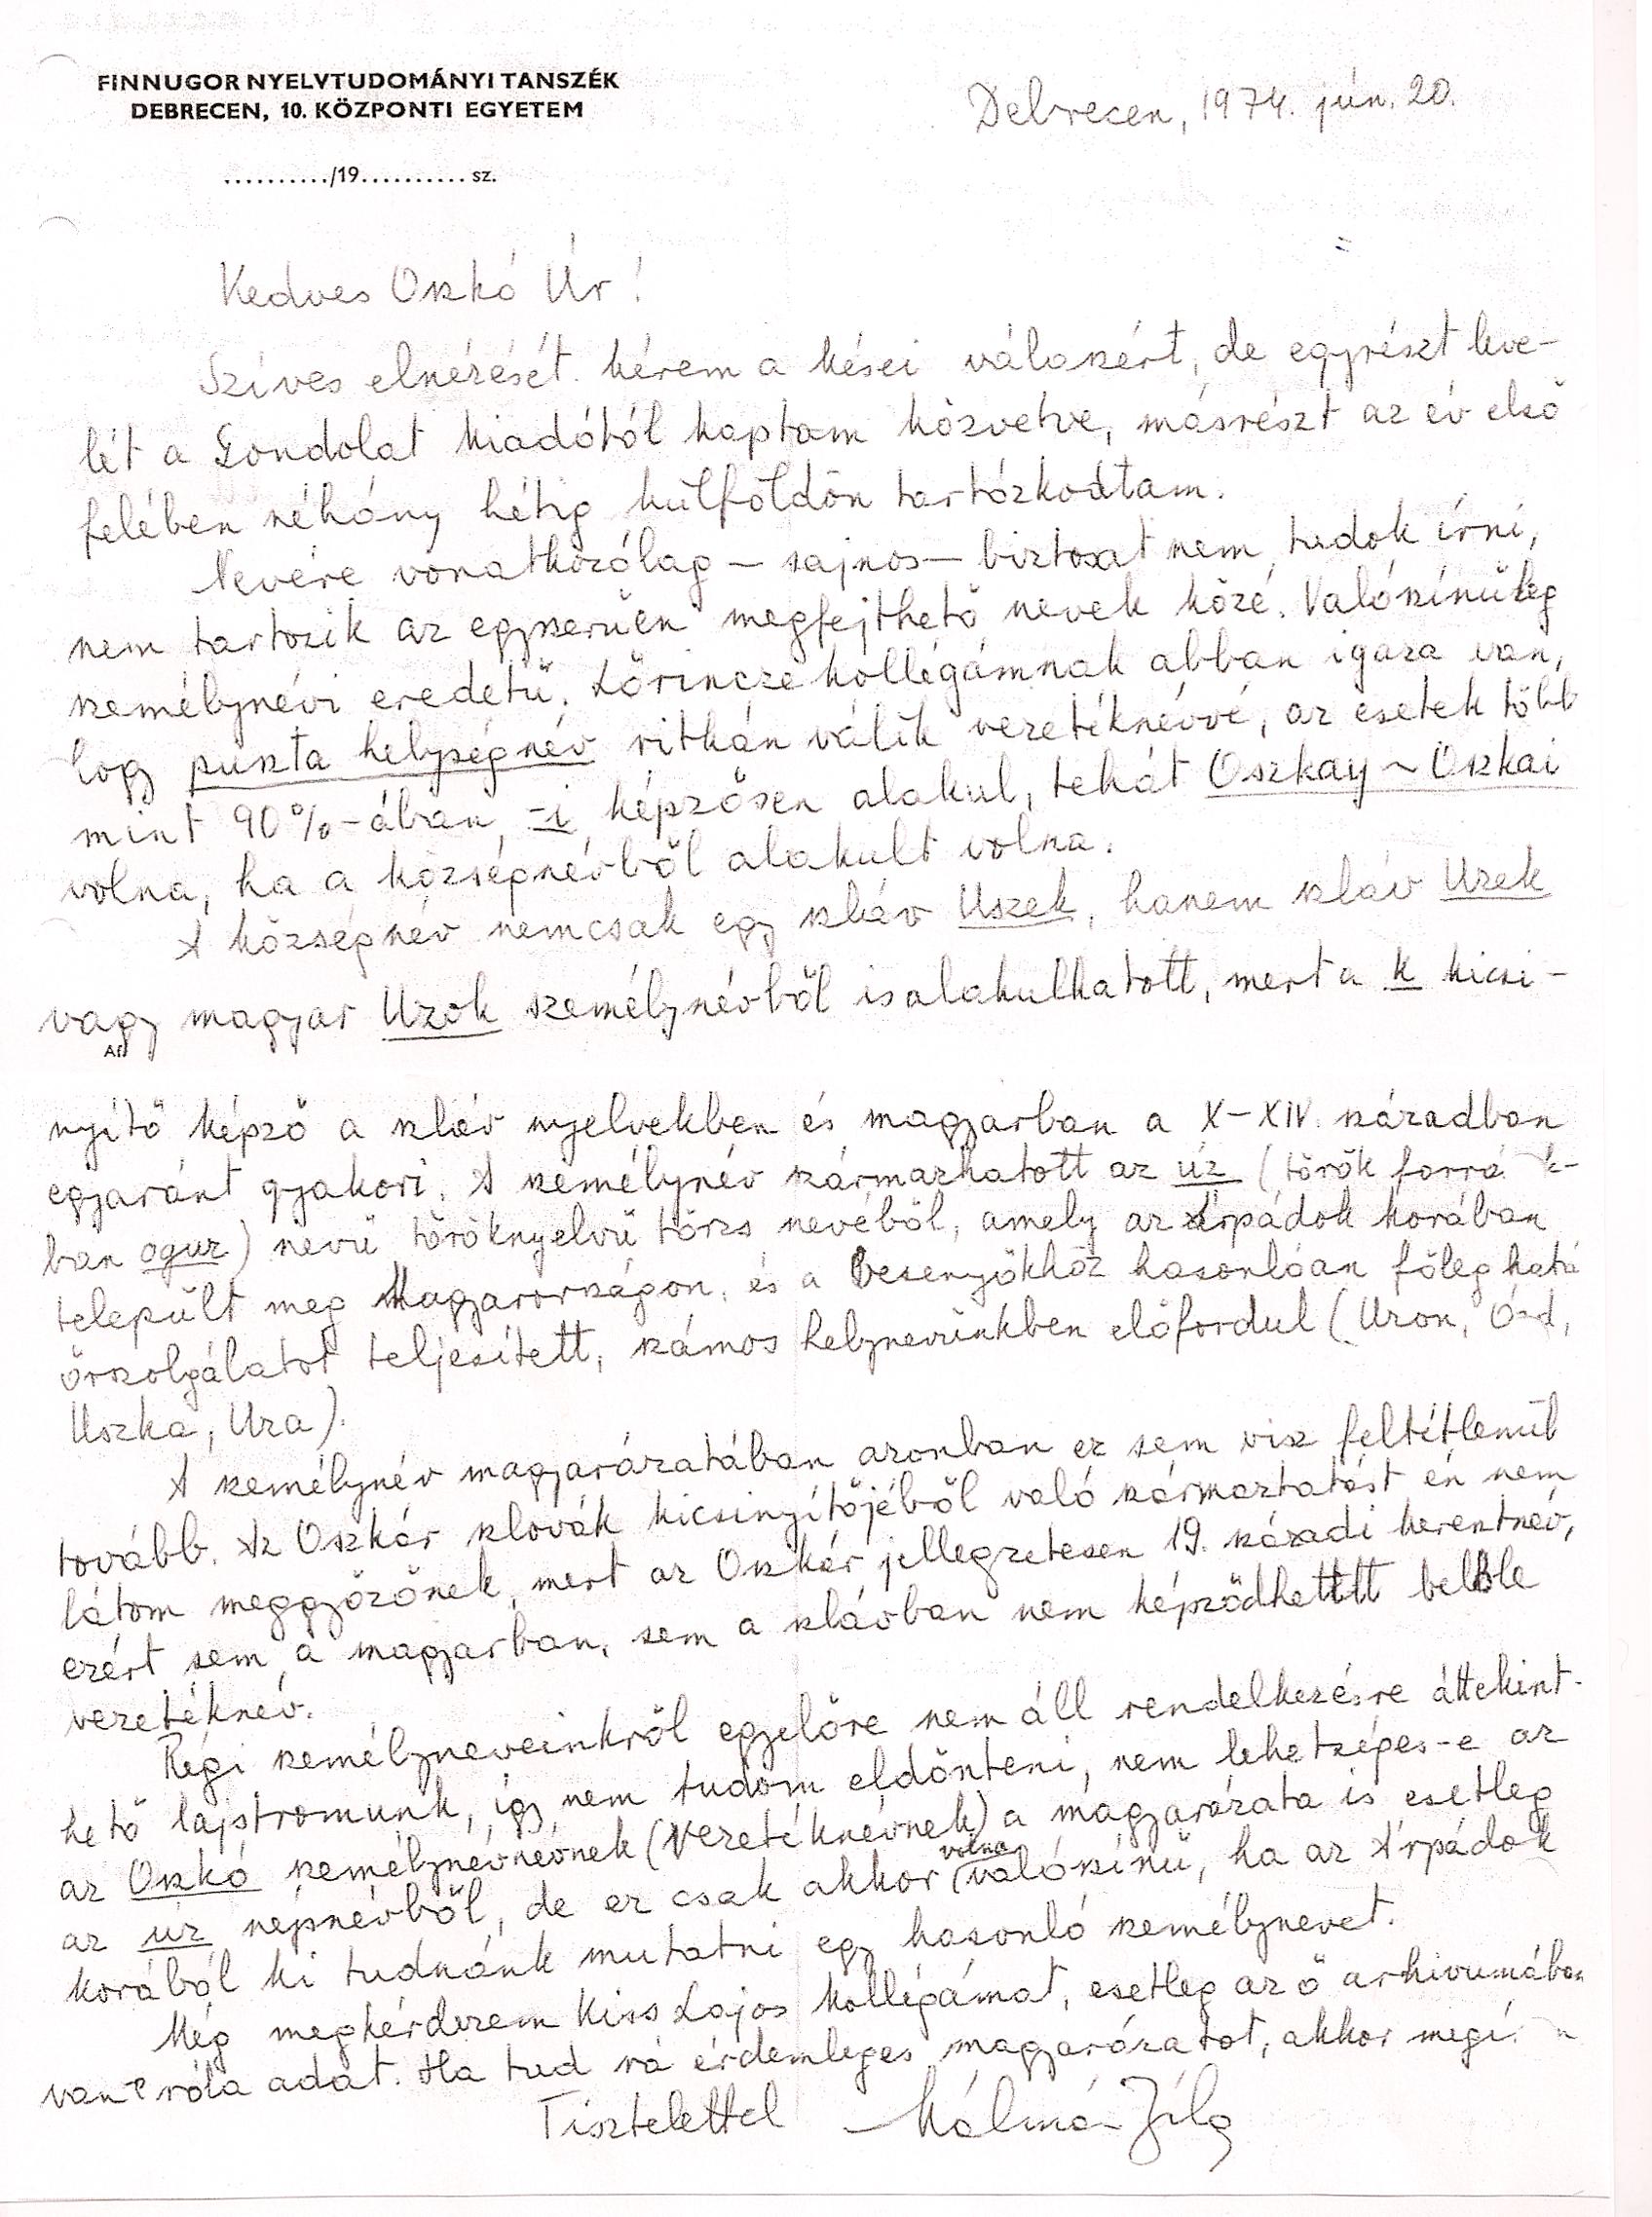 FINNUGOR NYELVTUDOMÁNYI TANSZÉK
DEBRECEN, 10. KÖZPONTI EGYETEM
........../19.......... sz.
Debrecen, 1974. jún. 20.
Kedves Oszkó Úr!
Szíves elnézését kérem a kései válaszért, de egyrészt leve-
lét a Gondolat kiadótól kaptam közvetve, másrészt az év első
felében néhány hétig külföldön tartózkodtam.
Nevére vonatkozólag – sajnos – biztosat nem tudok írni,
nem tartozik az egyszerűen megfejthető nevek közé. Valószínűleg
személynévi eredetű. Lőrincze kollégámnak abban igaza van,
hogy puszta helységnév ritkán válik vezetéknévvé, az esetek több
mint 90%-ában -i képzősen alakul, tehát Oszkay ~ Oszkai
volna, ha a községnévből alakult volna.
A községnév nemcsak egy szláv Uszek, hanem szláv Uzek
vagy magyar Uzok személynévből is alakulhatott, mert a k kicsi-
nyítő képző a szláv nyelvekben és magyarban a X–XIV. században
egyaránt gyakori. A személynév származhatott az úz (török forrá
ban oguz) nevű töröknyelvű törzs nevéből, amely az Árpádok korában
települt meg Magyarországon, és a besenyőkhöz hasonlóan főleg hatá
őrszolgálatot teljesített, számos helynevünkben előfordul (Uzon, Ózd,
Uszka, Uza).
A személynév magyarázatában azonban ez sem visz feltétlenül
tovább. Az Oszkár szlovák kicsinyítőjéből való származtatást én nem
látom meggyőzőnek, mert az Oszkár jellegzetesen 19. századi keresztnév,
ezért sem a magyarban, sem a szlávban nem képződhetett belőle
vezetéknév.
Régi személyneveinkről egyelőre nem áll rendelkezésre áttekint-
hető lajstromunk, így nem tudom eldönteni, nem lehetséges-e az
az Oszkó személynévnévnek (vezetéknévnek) a magyarázata is esetleg
az úz népnévből, de ez csak akkor volna valószínű, ha az Árpádok
korából ki tudnánk mutatni egy hasonló személynevet.
Még megkérdezem Kiss Lajos kollégámat, esetleg az ő arhivumában
van-e róla adat. Ha tud rá érdemleges magyarázatot, akkor megí
Tisztelettel Kálmán Béla